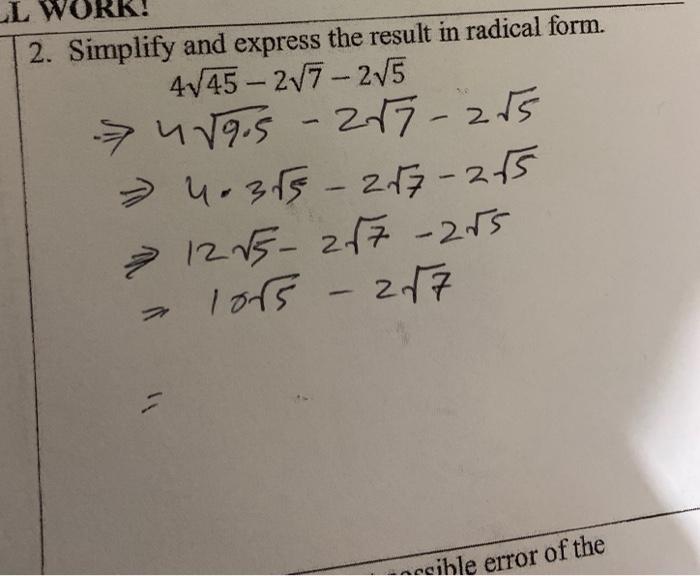 LL WORK!
2. Simplify and express the result in radical form.
4√45 − 2√7 − 2√5
⇒ 4√9.5 - 2√7 - 2√5
⇒ 4 • 3√5 - 2√7 - 2√5
⇒ 12√5 - 2√7 - 2√5
= 10√5 - 2√7
=
ossible error of the